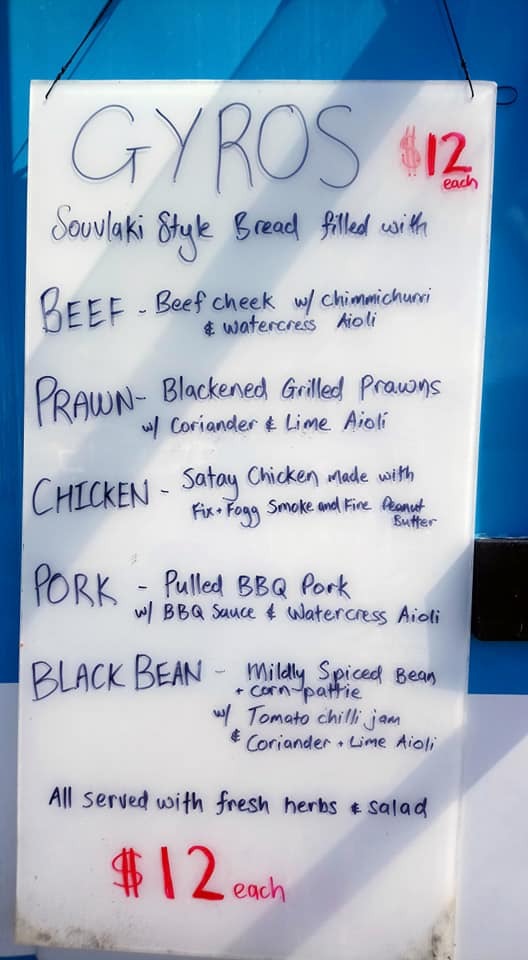 GYROS
$12
each
Souvlaki Style Bread filled with
BEEF - Beef cheek w/ chimmichurri
& watercress Aioli
PRAWN - Blackened Grilled Prawns
w/ Coriander & Lime Aioli
CHICKEN - Satay Chicken made with
Fix + Fogg Smoke and Fire Peanut
Butter
PORK - Pulled BBQ Pork
w/ BBQ Sauce & Watercress Aioli
BLACK BEAN - Mildly Spiced Bean
+ corn-pattie
w/ Tomato chilli jam
& Coriander + Lime Aioli
All served with fresh herbs & salad
$12 each